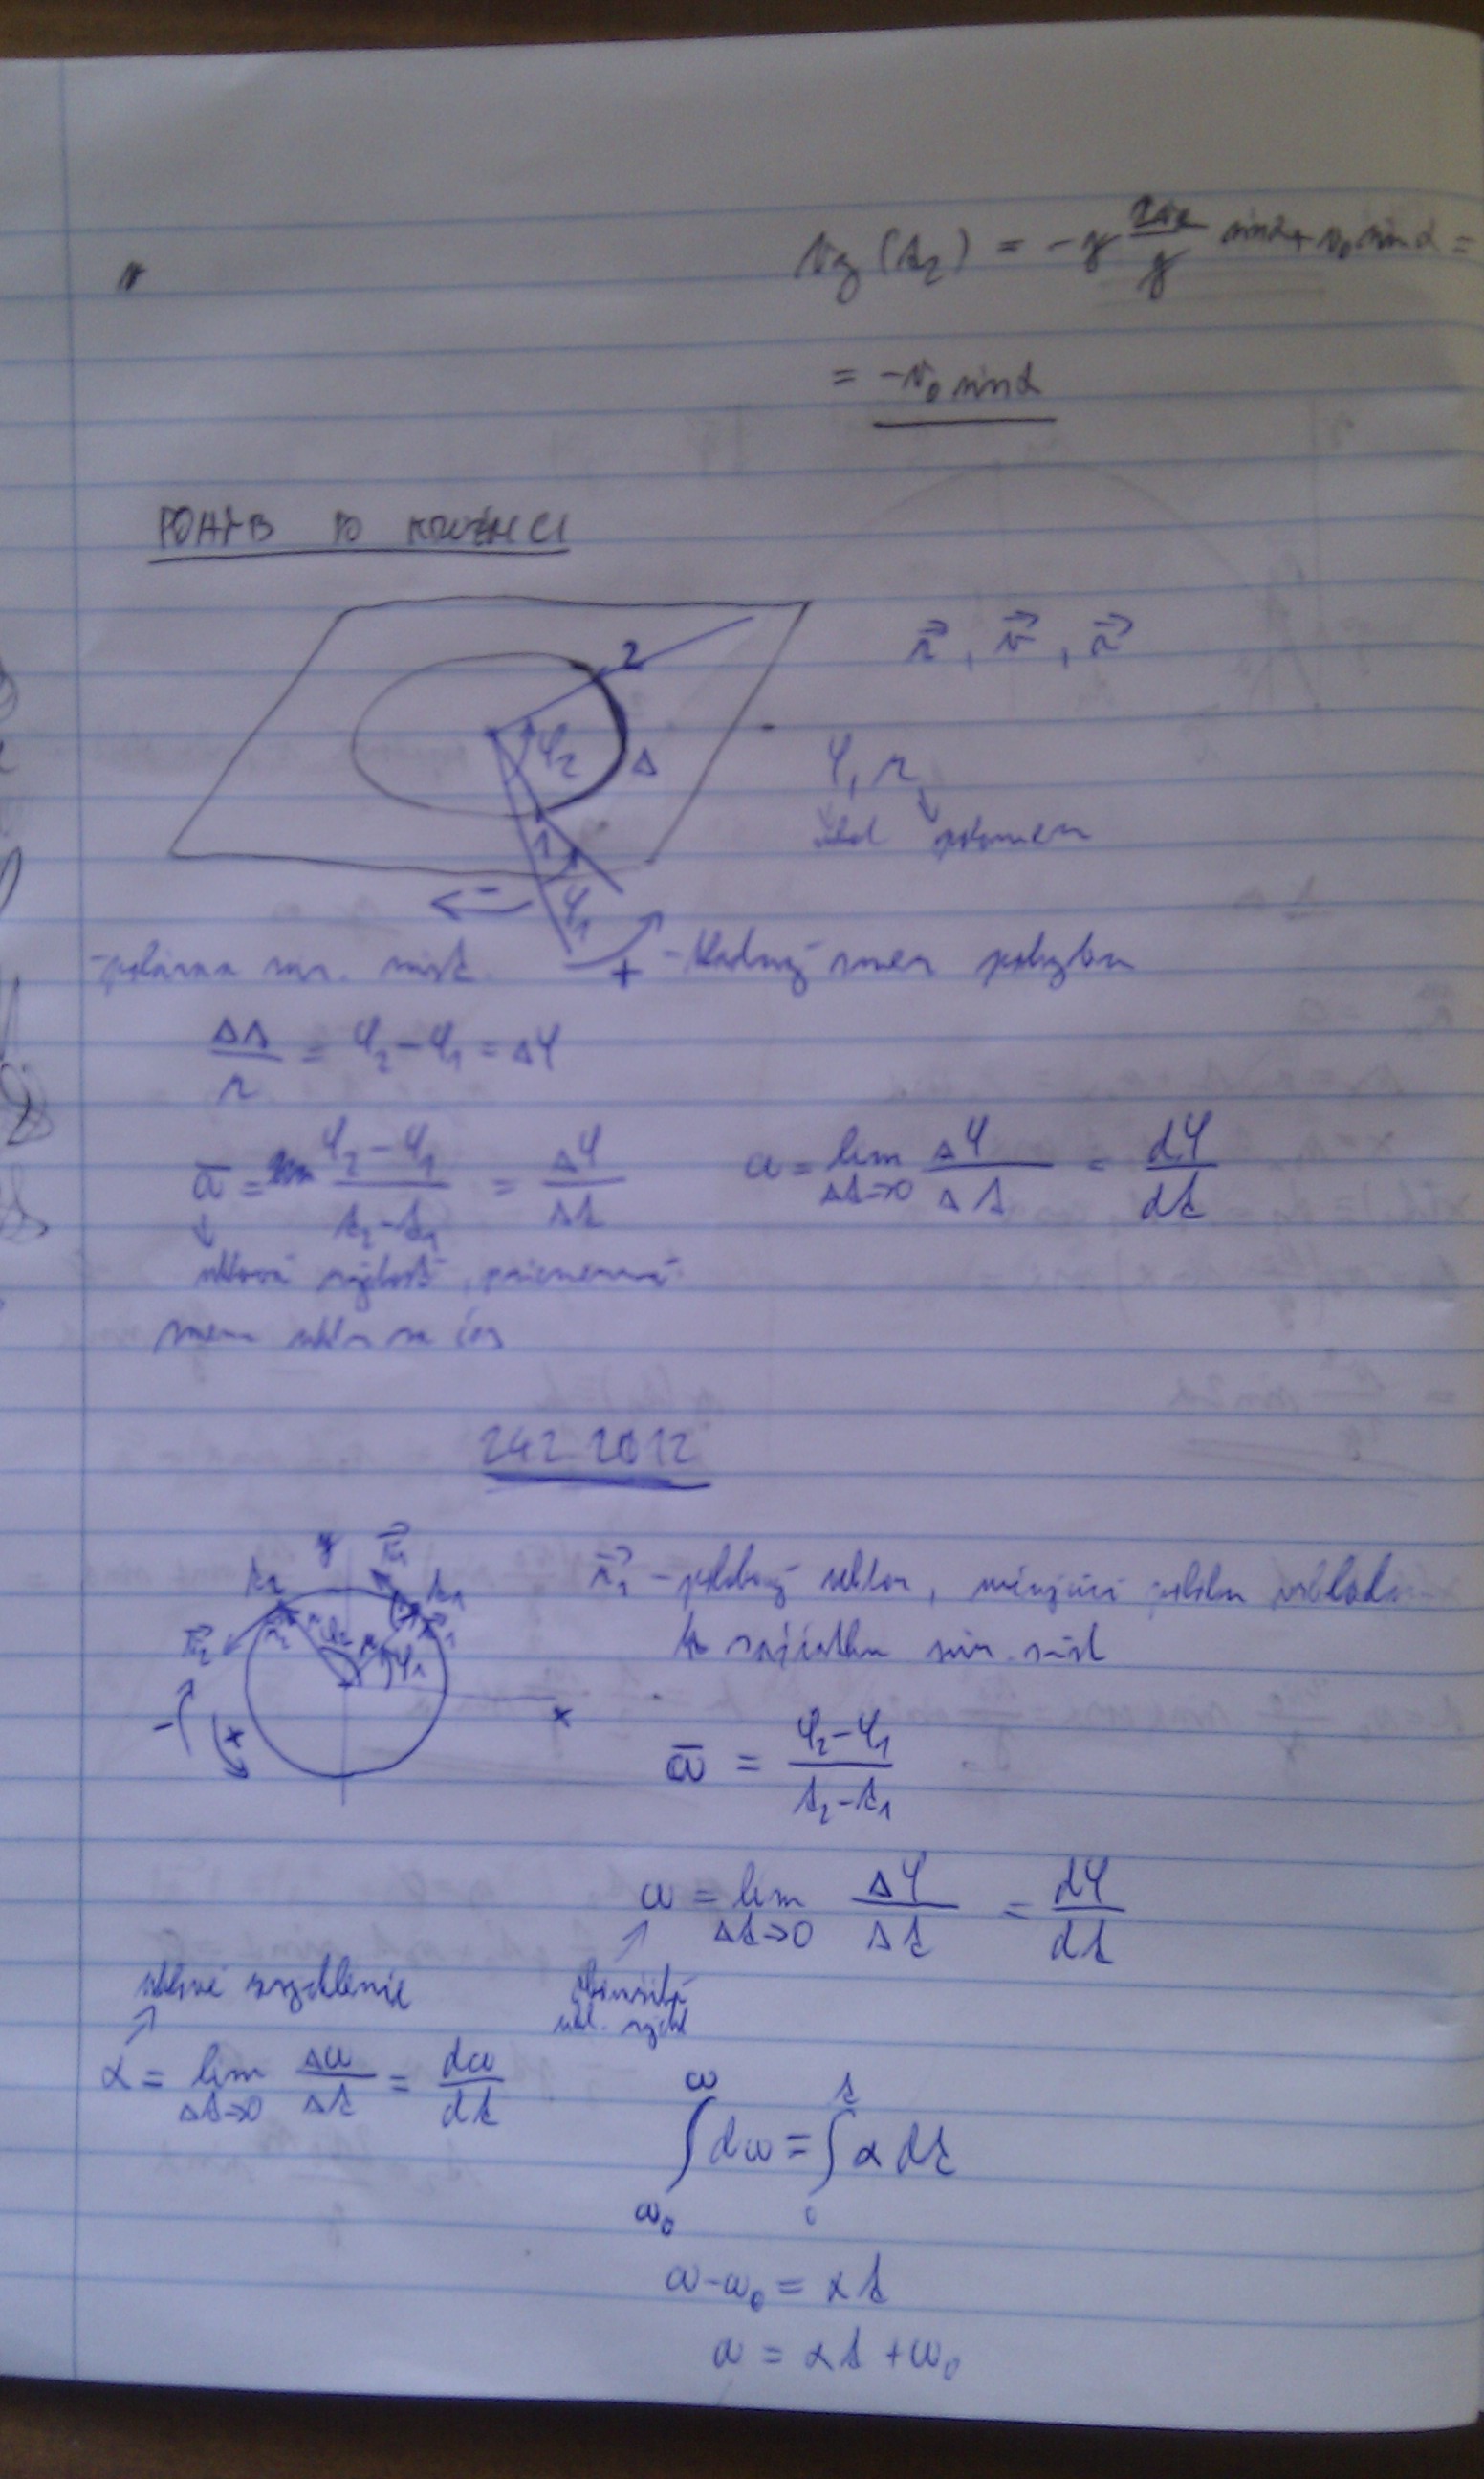 v_y(t_2) = -g \frac{2v_0}{g} sinα + v_0 sinα =
= -v_0 sinα
POHYB PO KRUŽNICI
\vec{r}, \vec{v}, \vec{r}
2
φ_2
Δ
1
φ_1
φ, r
uhol polomer
-
+
-polárna súr. súst.
-kladný smer pohybu
\frac{Δs}{r} = φ_2 - φ_1 = Δφ
\bar{ω} = \frac{φ_2 - φ_1}{t_2 - t_1} = \frac{Δφ}{Δt}
ω = lim_{Δt→0} \frac{Δφ}{Δt} = \frac{dφ}{dt}
uhlová rýchlosť, priemerná
zmena uhla za čas
24.2.2012
y
t_2
t_1
\vec{v}_1
\vec{v}_2
φ_2
φ_1
\vec{r}_1
x
-
+
\vec{r}_1 - polohový vektor, určujúci polohu vzhľadom
k začiatku súr. súst
\bar{ω} = \frac{φ_2 - φ_1}{t_2 - t_1}
ω = lim_{Δt→0} \frac{Δφ}{Δt} = \frac{dφ}{dt}
okamžitá
uhl. rýchl
uhlové zrýchlenie
α = lim_{Δt→0} \frac{Δω}{Δt} = \frac{dω}{dt}
\int_{ω_0}^{ω} dω = \int_{0}^{t} α dt
ω - ω_0 = αt
ω = αt + ω_0